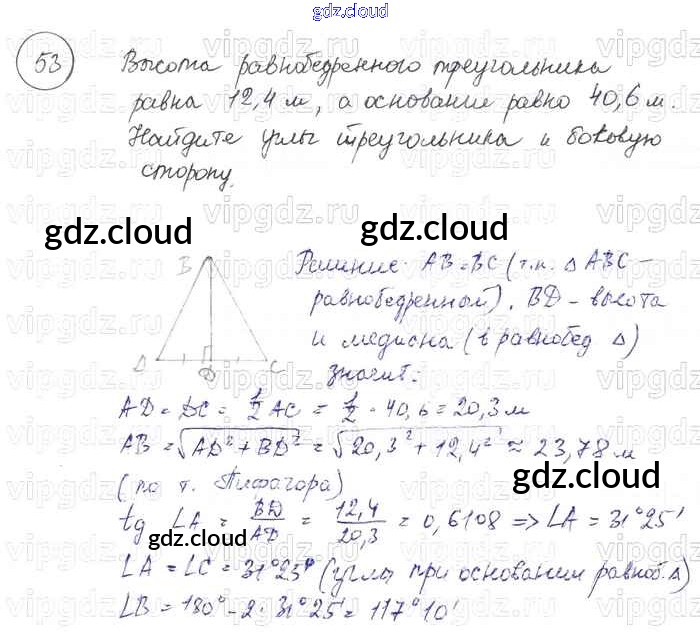 gdz.cloud
53
Высота равнобедренного треугольника
равна 12,4 м, а основание равно 40,6 м.
Найдите углы треугольника и боковую
сторону.
gdz.cloud
gdz.cloud
B
A
D
C
Решение: AB=BC (т.к. △ABC –
равнобедренный). BD – высота
и медиана (в равнобед △)
значит:
AD = DC = 1/2 AC = 1/2 · 40,6 = 20,3 м
AB = √AD² + BD² = √20,3² + 12,4² ≈ 23,78 м
(по т. Пифагора)
gdz.cloud
tg ∠A = BD/AD = 12,4/20,3 = 0,6108 => ∠A = 31°25'
gdz.cloud
∠A = ∠C = 31°25' (углы при основании равноб. △)
∠B = 180° - 2 · 31°25' = 117°10'
vipgdz.ru